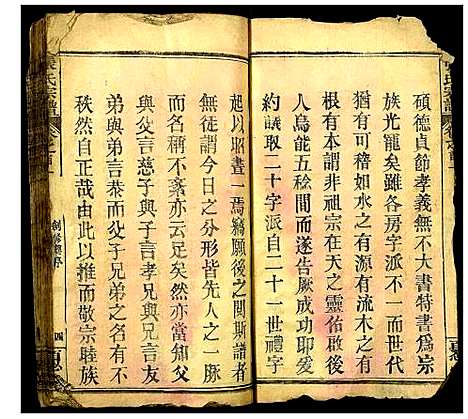 碩德貞節孝義無不大書特書為宗
族光寵矣雖各房字派不一而世代
猶有可稽如水之有源有流木之有
根有本謂非祖宗在天之靈佑啟後
人烏能五稔間而遂告厥成功耶爰
約議取二十字派自二十一世禮字
起以昭畫一焉竊願後之閱斯譜者
無徒謂今日之分形皆先人之一脈
相傳而不紊亦云足矣然亦當知父
與父言慈子與子言孝兄與兄言友
弟與弟言恭而父子兄弟之名之分
秩然自正哉由此以推而敬宗睦族
氏宗譜
卷之首一
創修舊序
四
氏宗譜